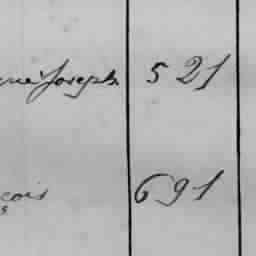 Joseph 521
çois 691